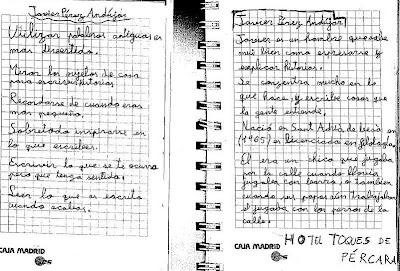 Javier Pérez Andújar
Utilizar palabras antiguas es
mas divertido.
Mirar los objetos de casa
para escribir historias
Recordarse de cuando eras
mas pequeño.
Sobretodo inspirarse en
lo que escribes.
Escrivir lo que se te ocurra
pero que tenga sentido.
Leer lo que as escrito
cuando acabas.
CAJA MADRID
Javier Pérez Andújar
Javier es un hombre que sabe
muy bien como expresarse y
explicar historias.
Se conzentra mucho en lo
que hace, y escribe cosas que
la gente entiende.
Nació en Sant Adrià de
(1965) es licenciado en filología.
El era un chico que jugaba
por la calle cuando llovía
jugaba con barro, o tambien
cuando sus papas trabajaban
el jugaba con los perros de la
calle.
CAJA MADRID
HOTEL TOQUES DE
PÉRCARA